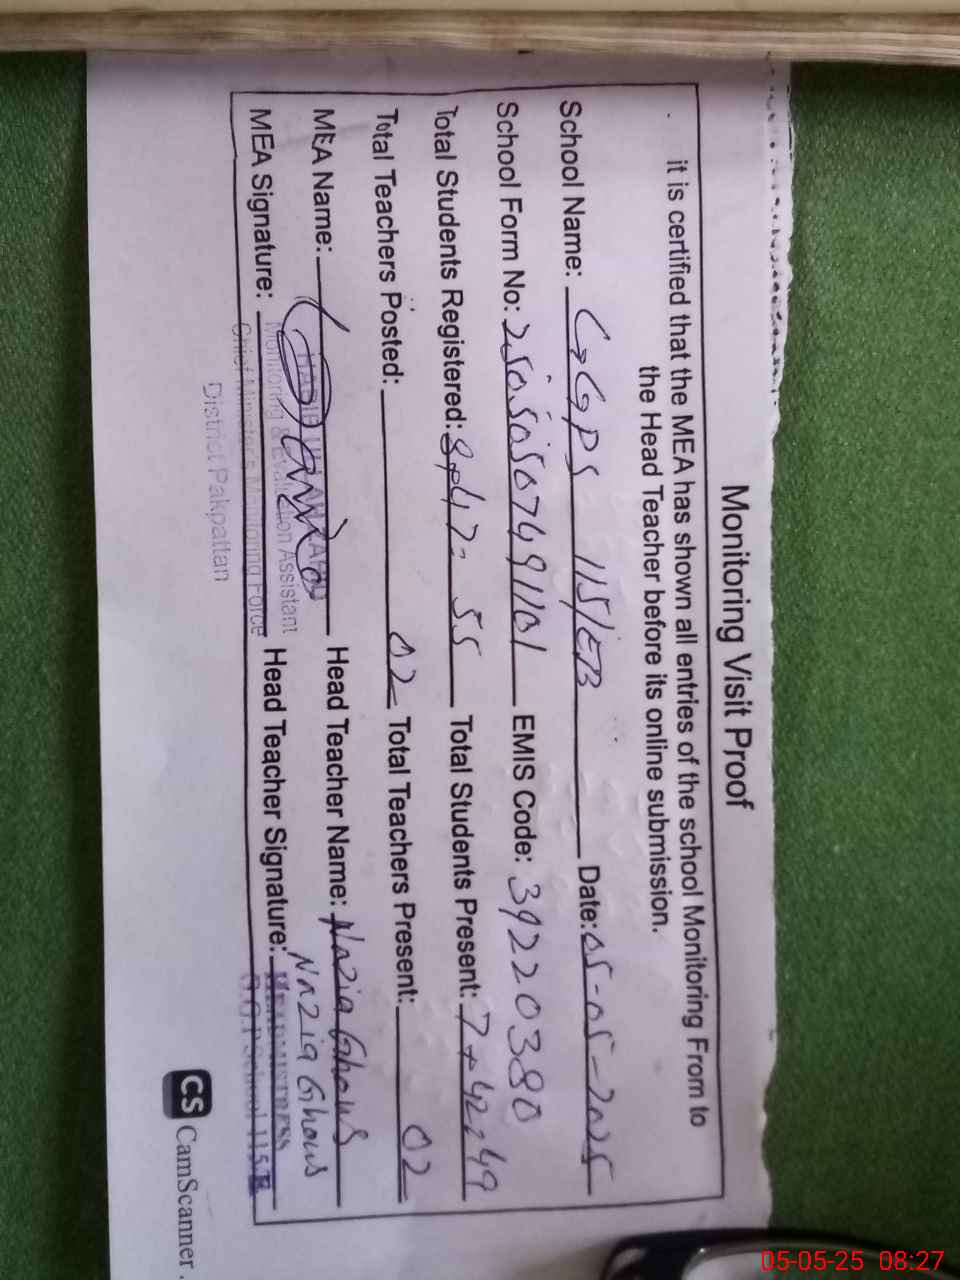 Monitoring Visit Proof
it is certified that the MEA has shown all entries of the school Monitoring From to
the Head Teacher before its online submission.
School Name: GGPS 115/EB Date: 05-05-2025
School Form No: 2505050749101 EMIS Code: 39220380
Total Students Registered: 8+47= 55 Total Students Present: 7+42=49
Total Teachers Posted: 02 Total Teachers Present: 02
MEA Name: Head Teacher Name: Nazia Ghous
MEA Signature: Head Teacher Signature: Nazia Ghous
Monitoring & Evaluation Assistant
Chief Minister's Monitoring Force
District Pakpattan
HEADMISTRESS
G.G.P School 115
CS CamScanner
05-05-25 08:27